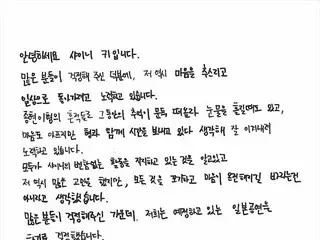 안녕하세요 샤이니 키입니다.
많은 분들이 걱정해 주신 덕분에, 저 역시 마음을 추스리고
일상으로 돌아가려고 노력하고 있습니다.
종현이형의 흔적들로 그동안의 추억이 문득 떠올라 눈물을 흘릴때도 있고,
마음도 아프지만 형과 함께 시간을 보내고 있다 생각해 잘 이겨내려
노력하고 있습니다.
모두가 샤이니의 변함없는 활동을 걱정하고 있는 것을 알고있고
저 역시 많은 고민을 했지만, 모든 것을 포기하고 마음이 온전해지길 바라는건
아니라고 생각했습니다.
많은 분들이 걱정해주신 가운데, 저희는 예정하고 있는 일본공연을
결정했습니다.